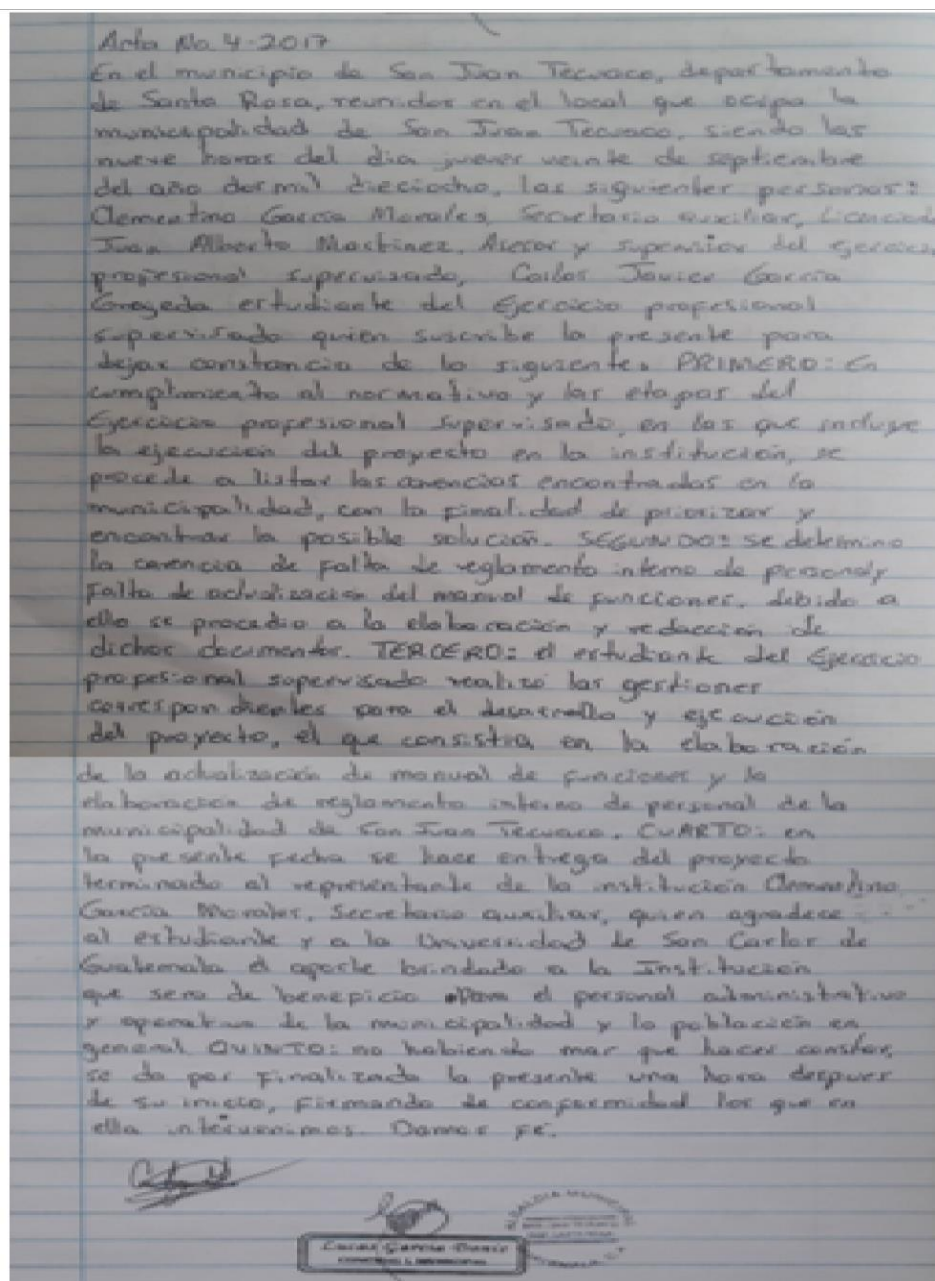 Acta No. 4-2017
En el municipio de San Juan Tecuaco, departamento
de Santa Rosa, reunidos en el local que ocupa la
municipalidad de San Juan Tecuaco, siendo las
nueve horas del dia jueves veinte de septiembre
del año dos mil dieciocho, las siguientes personas:
Clementino García Morales, Secretario auxiliar, Licenciado
Juan Alberto Martinez, Asesor y supervisor del ejercicio
profesional supervisado, Carlos Javier García
estudiante del Ejercicio profesional
supervisado quien suscribe la presente para
dejar constancia de lo siguiente. PRIMERO: En
cumplimiento al normativo y las etapas del
Ejercicio profesional supervisado, en las que incluye
la ejecución del proyecto en la institución, se
procede a listar las carencias encontradas en la
municipalidad, con la finalidad de priorizar y
encontrar la posible solución. SEGUNDO: se determino
la carencia de falta de reglamento interno de personal y
falta de actualización del manual de funciones, debido a
ello se procedio a la elaboración y redacción de
dichos documentos. TERCERO: el estudiante del Ejercicio
profesional supervisado realizó las gestiones
correspondientes para el desarrollo y ejecución
del proyecto, el que consistia en la elaboración
de la actualización de manual de funciones y la
elaboración de reglamento interno de personal de la
municipalidad de San Juan Tecuaco. CUARTO: en
la presente fecha se hace entrega del proyecto
terminado al representante de la institución Clementino
García Morales, Secretario auxiliar, quien agradece
al estudiante y a la Universidad de San Carlos de
Guatemala el aporte brindado a la Institución
que sera de beneficio Para el personal administrativo
y operativo de la municipalidad y la población en
general QUINTO: no habiendo mas que hacer constar,
se da por finalizada la presente una hora despues
de su inicio, firmando de conformidad los que en
ella intervenimos. Damos fe.